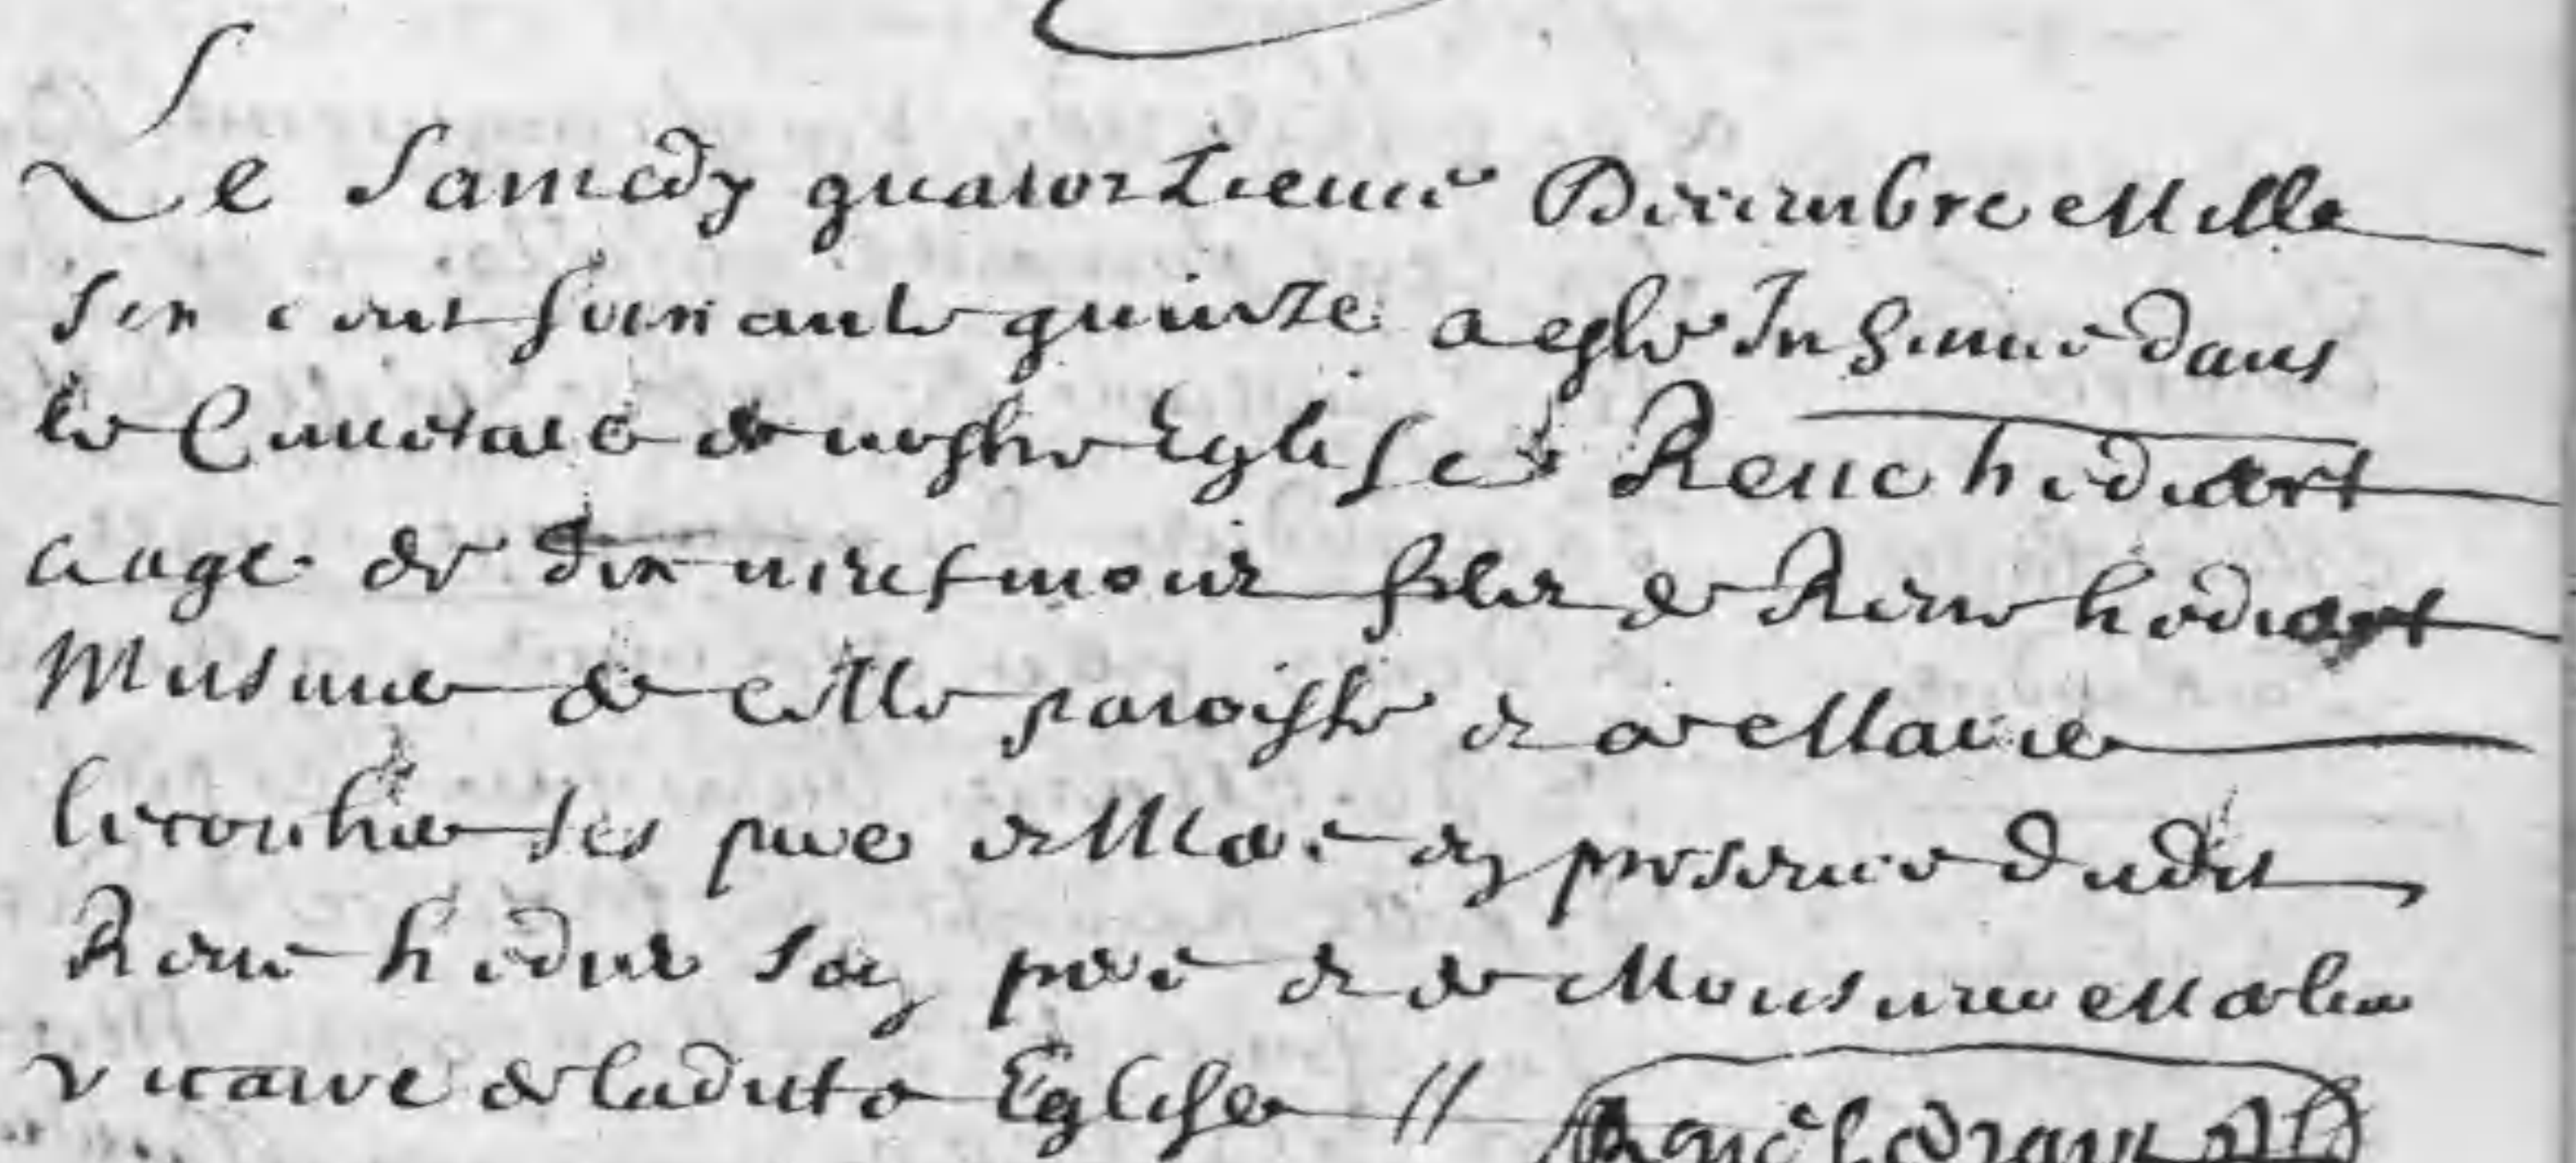 Le Samedy quatorzieme Decembre Mille
six cent soixante quinze a este Inhumé dans
le Cimetiere de nostre Eglise René hediart
aagé de dix neuf mois fils de René hediart
Musnier de cette paroisse & de Marie
ses pere & Mere en presence dudit
René hediart son pere & de Monsieur
vicaire de ladicte Eglise //